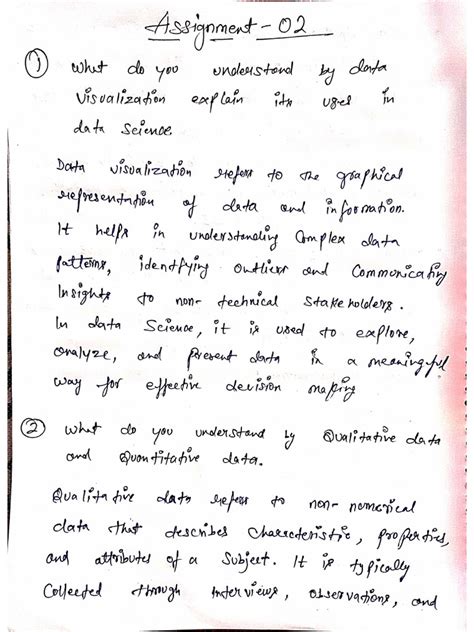 Assignment - 02
① What do you understand by data
Visualization explain its uses in
data science.
Data visualization refers to the graphical
representation of data and information.
It helps in understanding Complex data
patterns, identifying outliers and Communicating
Insights to non-technical stakeholders.
In data Science, it is used to explore,
analyze, and present data in a meaningful
way for effective decision making
② What do you understand by Qualitative data
and Quantitative data.
Qualitative data refers to non-numerical
data that describes characteristic, properties,
and attributes of a Subject. It is typically
Collected through Interviews, observations, and